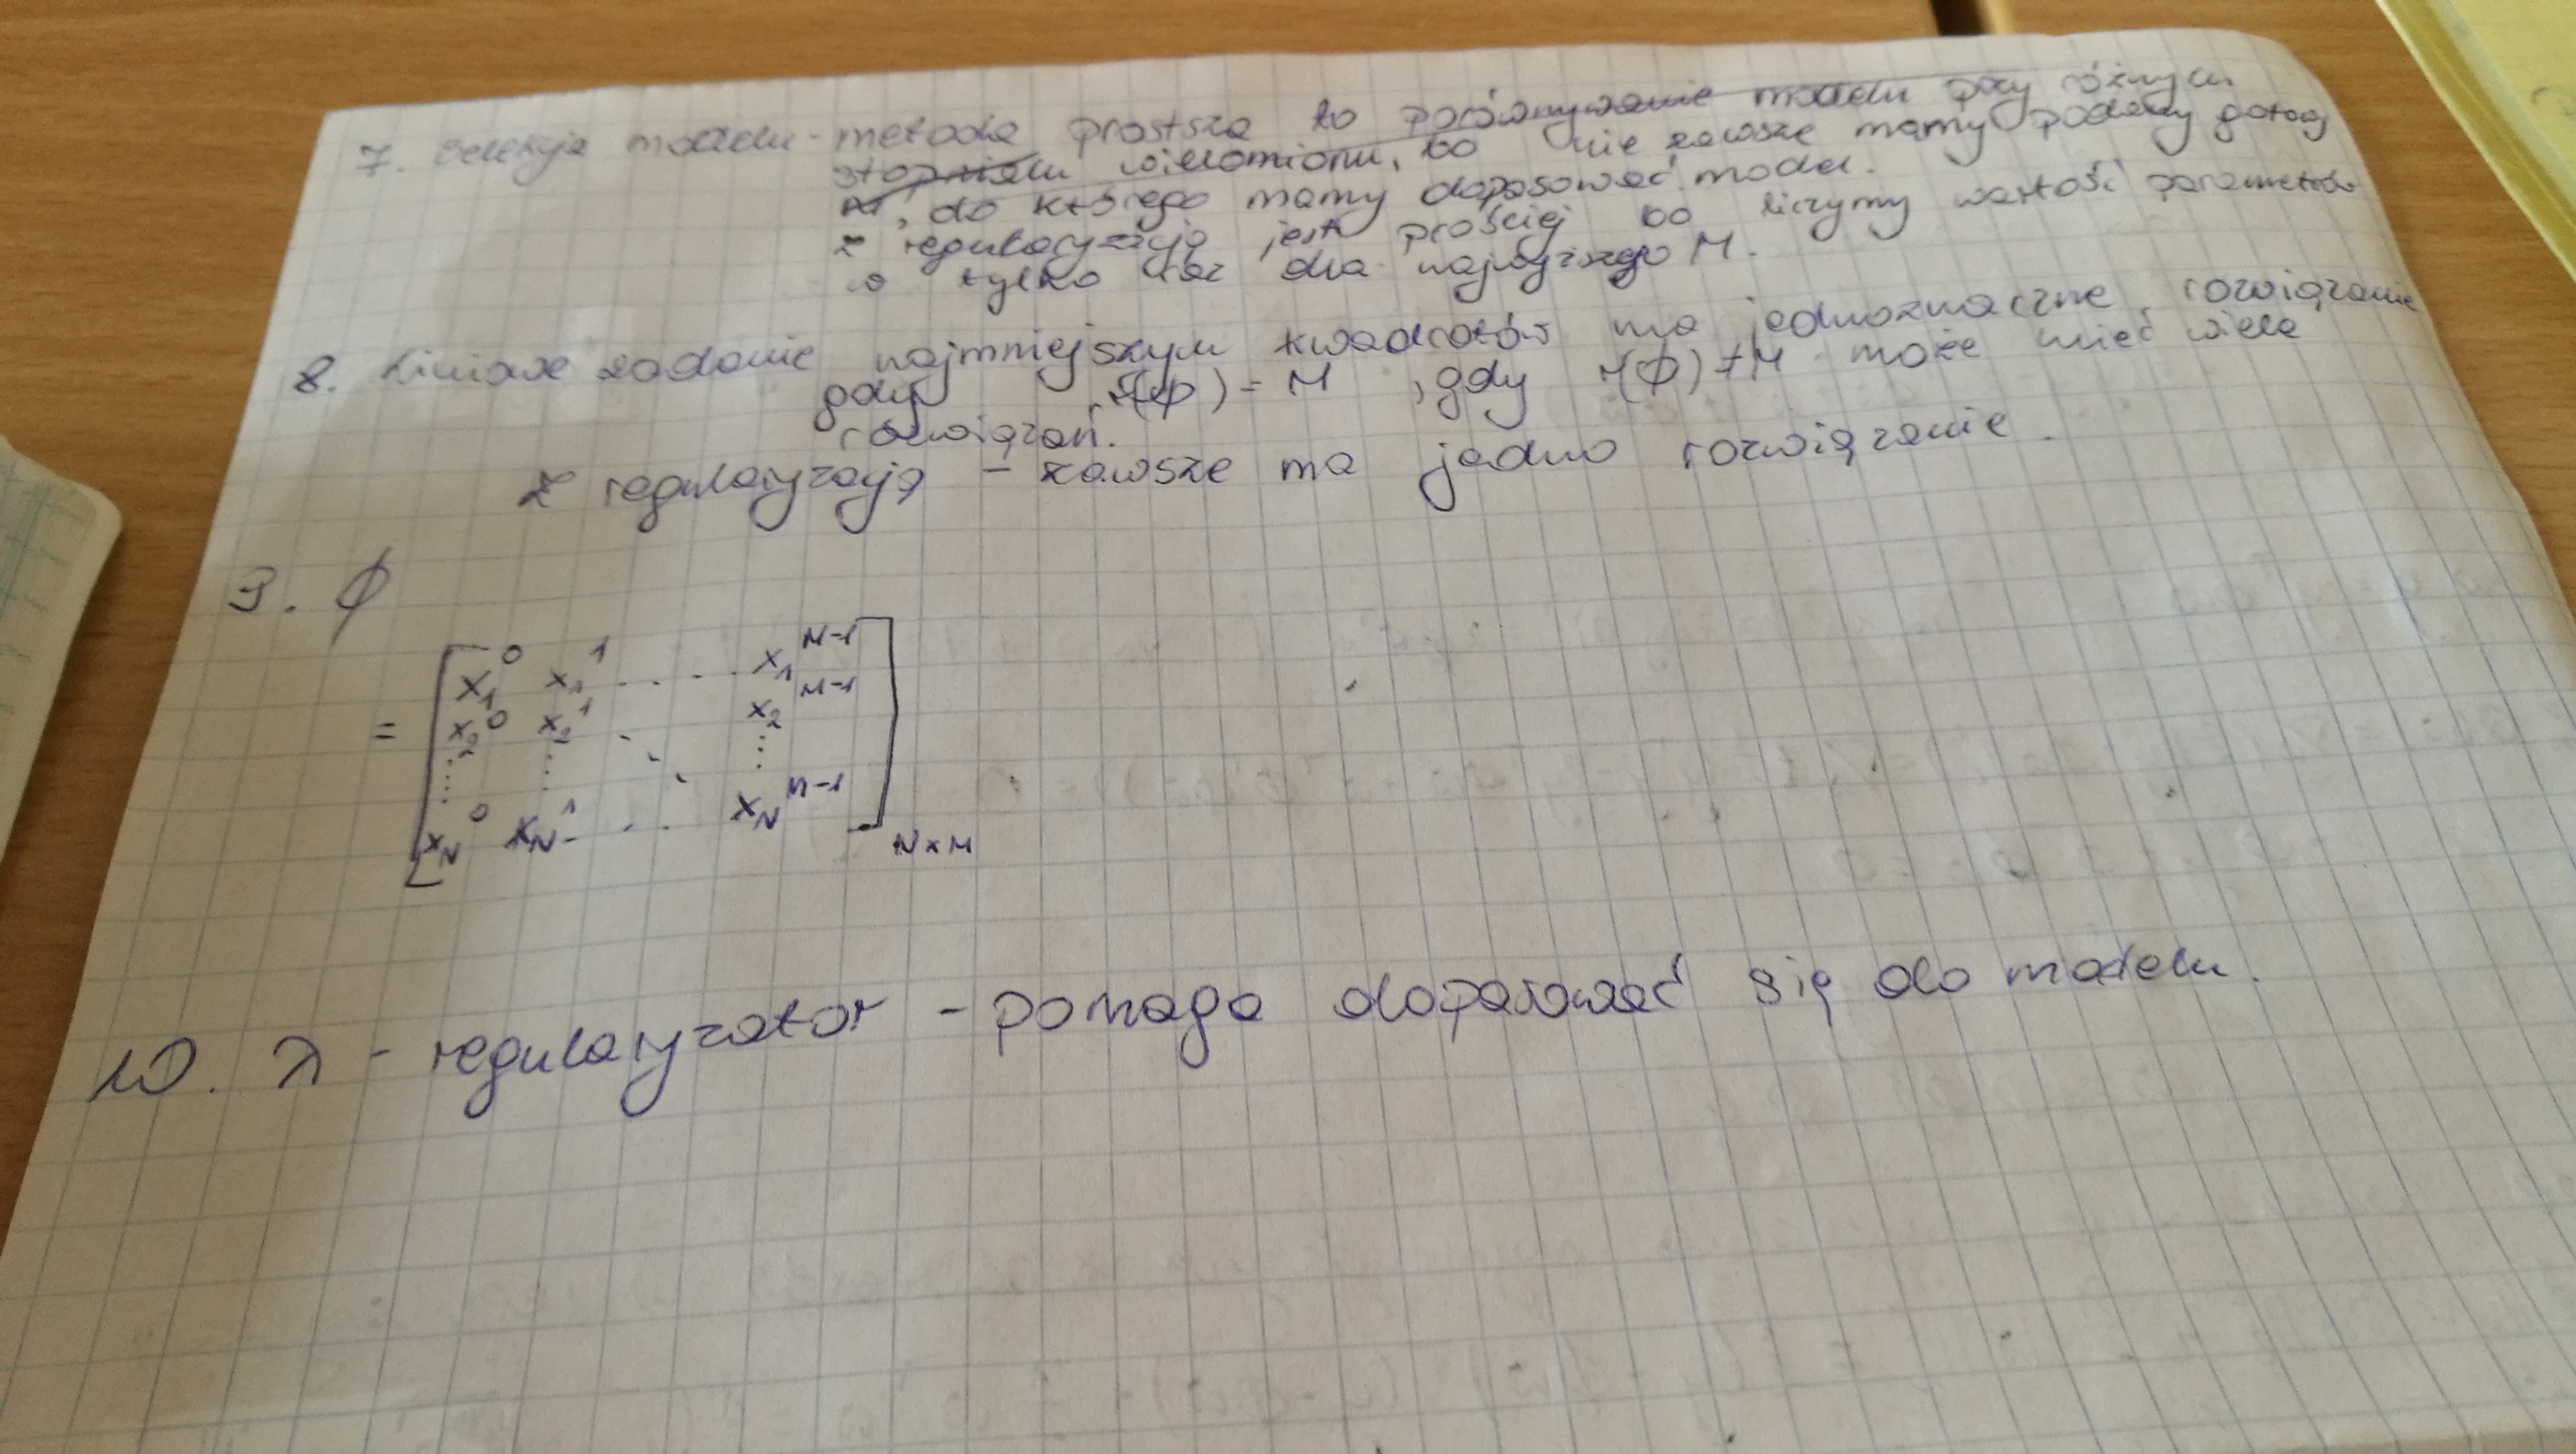 7. Selekcja modelu - metoda prostsza to porównywanie modelu przy różnych
stopniach wielomianu, bo nie zawsze mamy podany gotowy
M, do którego mamy dopasować model.
z regularyzacją jest prościej bo liczymy wartość parametrów
tylko raz dla najwyższego M.
8. Liniowe zadanie najmniejszych kwadratów ma jednoznaczne rozwiązanie
gdy r(ϕ) = M , gdy r(ϕ) ≠ M może mieć wiele
rozwiązań.
Z regularyzacją - zawsze ma jedno rozwiązanie.
9. ϕ
= [ x₁⁰ x₁¹ . . . . x₁ᴹ⁻¹
x₂⁰ x₂¹ . . . x₂ᴹ⁻¹
⋮ ⋮ ⋮
x_N⁰ x_N¹ - . . . x_Nᴹ⁻¹ ] N×M
10. λ - regularyzator - pomaga dopasować się do modelu.